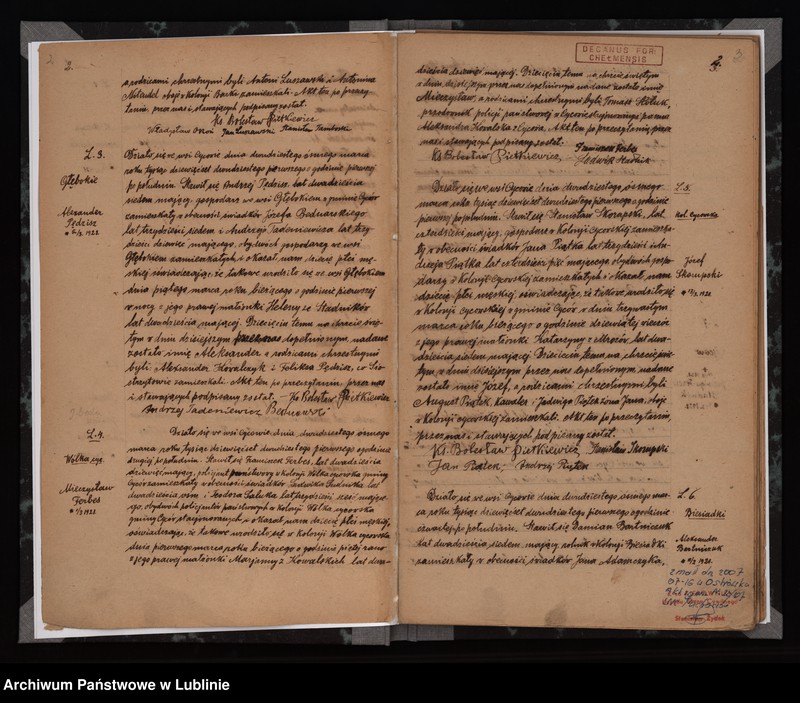 2.
a rodzicami chrzestnymi byli Antoni Luszawski i Antonina
obojе z Kolonji Barki zamieszkali. Akt ten po przeczy-
taniu przez nas i stawających podpisany został.
Ks Bolesław Pietkiewicz
Władysław Jan Luszawski Stanisław
L. 3.
Głębokie
Alexander
Pędzisz
Działo się we wsi Cycowie dnia dwudziestego ósmego marca
roku tysiąc dziewięćset dwudziestego pierwszego o godzinie pierwszej
po południu. Stawił się Andrzej Pędzisz, lat dwadzieścia
siedem mający, gospodarz we wsi Głębokiem w gminie Cyców
zamieszkały w obecności świadków Józefa Bednarskiego
lat trzydzieści siedem i Andrzeja Tadeniewicza lat trzy-
dzieści dziewięć mającego, obydwóch gospodarzy we wsi
Głębokiem zamieszkałych i okazał nam dziecię płci mę-
skiej oświadczając, że takowe urodziło się we wsi Głębokiem
dnia piątego marca roku bieżącego o godzinie pierwszej
w nocy z jego prawej małżonki Heleny ze Stadników
lat dwadzieścia mającej. Dziecięciu temu na chrzcie świę-
tym w dniu dzisiejszym przez nas dopełnionym, nadane
zostało imię Aleksander a rodzicami chrzestnymi
byli: Aleksander Kowalczyk z Feliksą Pędzisz, ze Świ-
zamieszkali. Akt ten po przeczytaniu, przez nas
i stawających podpisany został. – Ks Bolesław Pietkiewicz
Andrzej Tadeniewicz Bednarski
L. 4.
Wólka cyc.
Mieczysław
Ferbes
Działo się we wsi Cycowie dnia dwudziestego ósmego
marca roku tysiąc dziewięćset dwudziestego pierwszego o godzinie
drugiej po południu. Stawił się Franciszek Ferbes, lat dwadzieścia
dziewięć mający, policjant państwowy w kolonji Wólka cycowska gminy
Cyców zamieszkały w obecności świadków Ludwika lat
dwadzieścia osm i Teodora Saluka lat trzydzieści sześć mające-
go, obydwóch policjantów państwowych w kolonji Wólka cycowska
gminy Cyców stacjonowanych i okazał nam dziecię płci męskiej,
oświadczając, że takowe urodziło się w kolonji Wólka cycowska
dnia pierwszego marca roku bieżącego o godzinie piątej rano
z jego prawej małżonki Marjanny z Kowalskich lat dwa-
DECANUS FOR:
CHEŁMENSIS
3.
dzieścia dziewięć mającej. Dziecięciu temu na chrzcie świętym
w dniu dzisiejszym przez nas dopełnionym nadane zostało imię
Mieczysław, a rodzicami chrzestnymi byli Tomasz
przodownik policji państwowej w Cycowie
Aleksandra Kowalska z Cycowa. Akt ten po przeczytaniu, przez
nas i stawających podpisany został.
Ks Bolesław Pietkiewicz, Franciszek Ferbes
Ludwik
L. 5.
Kol. Cycowska
Józef
Skorupski
Działo się we wsi Cycowie dnia dwudziestego ósmego
marca roku tysiąc dziewięćset dwudziestego pierwszego o godzinie
pierwszej po południu. Stawił się Stanisław Skorupski, lat
czterdzieści mający, gospodarz w Kolonji Cycowskiej zamieszka-
ły w obecności świadków Jana Piątka lat trzydzieści i An-
drzeja Piątka lat czterdzieści pięć mającego obydwóch gospo-
darzy w Kolonji Cycowskiej zamieszkałych i okazał nam
dziecię płci męskiej, oświadczając, że takowe urodziło się
w Kolonji Cycowskiej w gminie Cyców w dniu trzynastym
marca roku bieżącego o godzinie dziewiątej wieczór
z jego prawej małżonki Katarzyny z Mrozów lat dwa-
dzieścia siedem mającej. Dziecięciu temu na chrzcie świę-
tym, w dniu dzisiejszym przez nas dopełnionym, nadane
zostało imię Józef, a rodzicami chrzestnymi byli
August Piątek, kawaler i Jadwiga Piątek żona Jana, oboje
w Kolonji cycowskiej zamieszkali. Akt ten po przeczytaniu,
przez nas i stawających podpisany został.
Ks. Bolesław Pietkiewicz, Stanisław Skorupski
Jan Piątek, Andrzej Piątek
L. 6.
Biesiadki
Aleksander
Bartniczak
Działo się we wsi Cycowie dnia dwudziestego ósmego mar-
ca roku tysiąc dziewięćset dwudziestego pierwszego o godzinie
czwartej po południu. Stawił się Damian Bartniczak
lat dwadzieścia siedem mający rolnik w kolonji Biesiadki
zamieszkały w obecności świadków Jana Adamczyka,
zmarł dn. 2007
Archiwum Państwowe w Lublinie